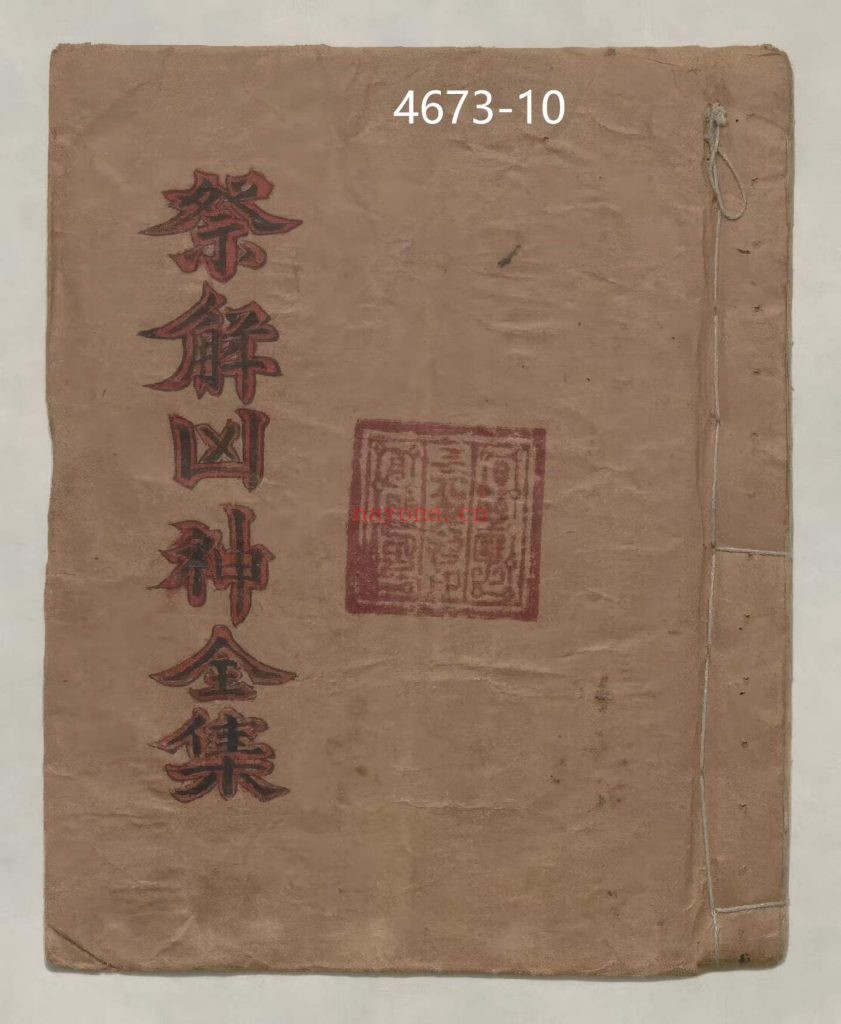 4673-10
祭解凶神全集
nayona.cn